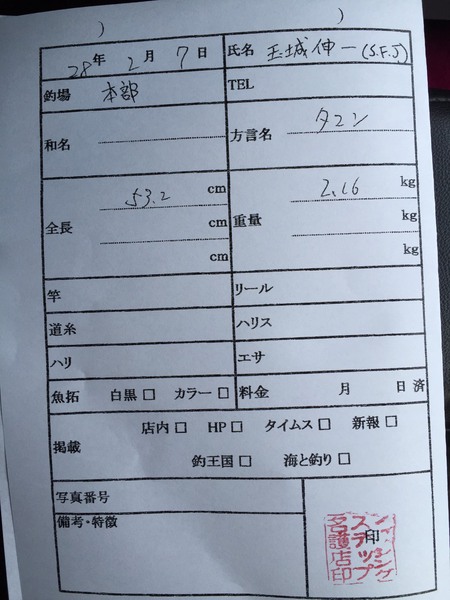 ) )
28年 2月 7日 氏名 玉城伸一(S.F.J)
釣場 本部 TEL
和名 方言名 タマン
全長 53.2 cm 重量 2.16 kg
cm kg
cm kg
竿 リール
道糸 ハリス
ハリ エサ
魚拓 白黒 □ カラー □ 料金 月 日 済
掲載 店内 □ HP □ タイムス □ 新報 □
釣王国 □ 海と釣り □
写真番号
備考・特徴
印
名護店印